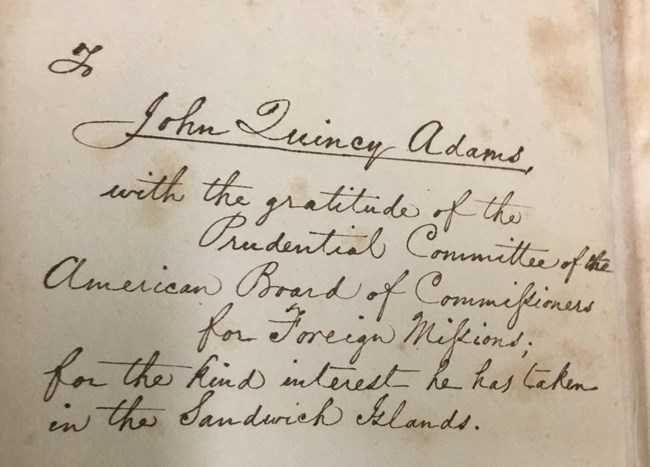 To
John Quincy Adams,
with the gratitude of the
Prudential Committee of the
American Board of Commiſsioners
for Foreign Miſsions;
for the kind interest he has taken
in the Sandwich Islands.